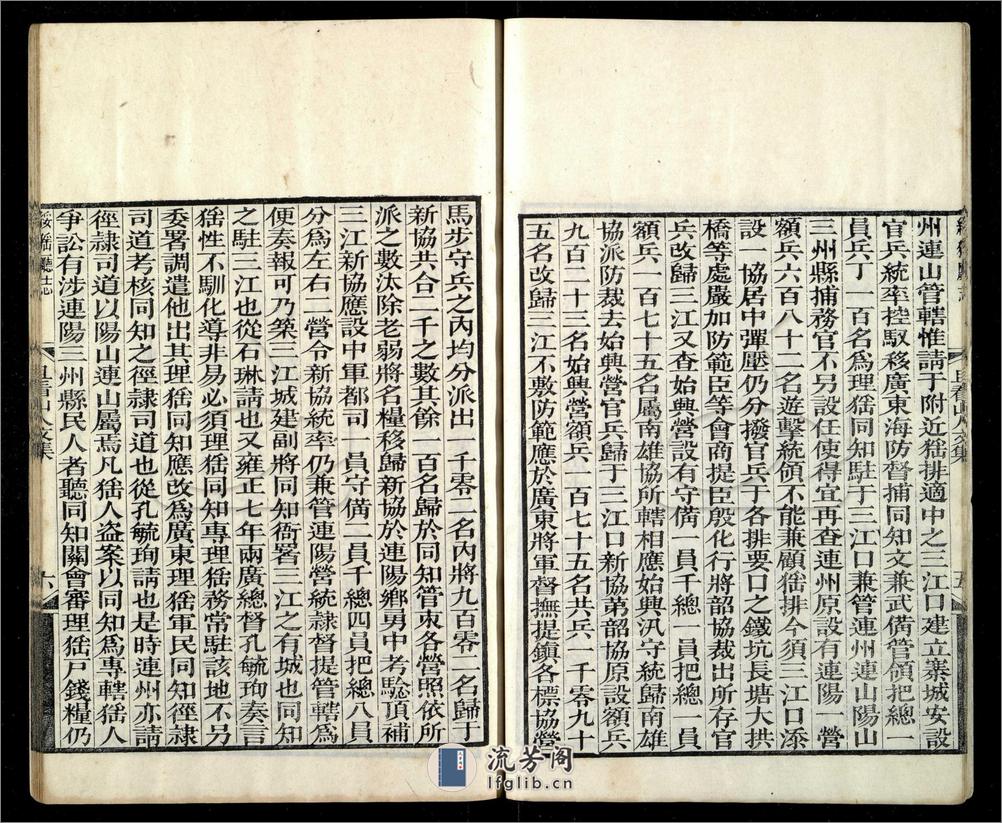 州連山管轄惟請于附近猺排適中之三江口建立寨城安設
官兵統率控馭移廣東海防督捕同知文兼武備管領把總一
員兵丁一百名爲理猺同知駐于三江口兼管連州連山陽山
三州縣捕務官不另設任使得宜再查連州原設有連陽一營
額兵六百八十二名遊擊統領不能兼顧猺排今須三江口添
設一協居中彈壓仍分撥官兵于各排要口之鐵坑長塘大拱
橋等處嚴加防範臣等會商提臣殷化行將韶協裁出所存官
兵改歸三江又查始興營設有守備一員千總一員把總一員
額兵一百七十五名屬南雄協所轄相應始興汛守統歸南雄
協派防裁去始興營官兵歸于三江口新協第韶協原設額兵
九百二十三名始興營額兵一百七十五名共兵一千零九十
五名改歸三江不敷防範應於廣東將軍督撫提鎮各標協營
馬步守兵之內均分派出一千零二名內將九百零二名歸于
新協共合二千之數其餘一百名歸於同知管束各營照依所
派之數汰除老弱將名糧移歸新協於連陽鄉勇中考驗頂補
三江新協應設中軍都司一員守備二員千總四員把總八員
分爲左右二營令新協統率仍兼管連陽營統隸督提管轄爲
便奏報可乃築三江城建副將同知衙署三江之有城也同知
之駐三江也從石琳請也又雍正七年兩廣總督孔毓珣奏言
猺性不馴化導非易必須理猺同知專理猺務常駐該地不另
委署調遣他出其理猺同知應改爲廣東理猺軍民同知徑隸
司道考核同知之徑隸司道也從孔毓珣請也是時連州亦請
徑隸司道以陽山連山屬焉凡猺人盜案以同知爲專轄猺人
爭訟有涉連陽三州縣民人者聽同知關會審理猺戶錢糧仍
綏猺廳志
且看山人文集
六
流芳阁
lfglib.cn